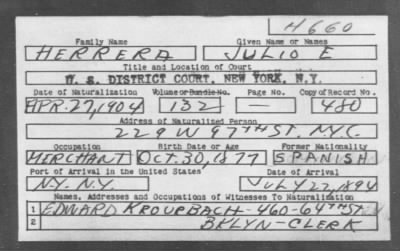 H660
Family Name Given Name or Names
HERRERA JULIO E
Title and Location of Court
U. S. DISTRICT COURT, NEW YORK, N.Y.
Date of Naturalization Volume or Bundle No. Page No. Copy of Record No.
APR. 27, 1904 132 — 480
Address of Naturalized Person
229 W 97TH ST. N.Y.C.
Occupation Birth Date or Age Former Nationality
MERCHANT OCT. 30, 1877 SPANISH
Port of Arrival in the United States Date of Arrival
N.Y. N.Y. JULY 27, 1894
Names, Addresses and Occupations of Witnesses To Naturalization
1 EDWARD KROUPBACH - 460 - 64TH ST.
2 BKLYN - CLERK